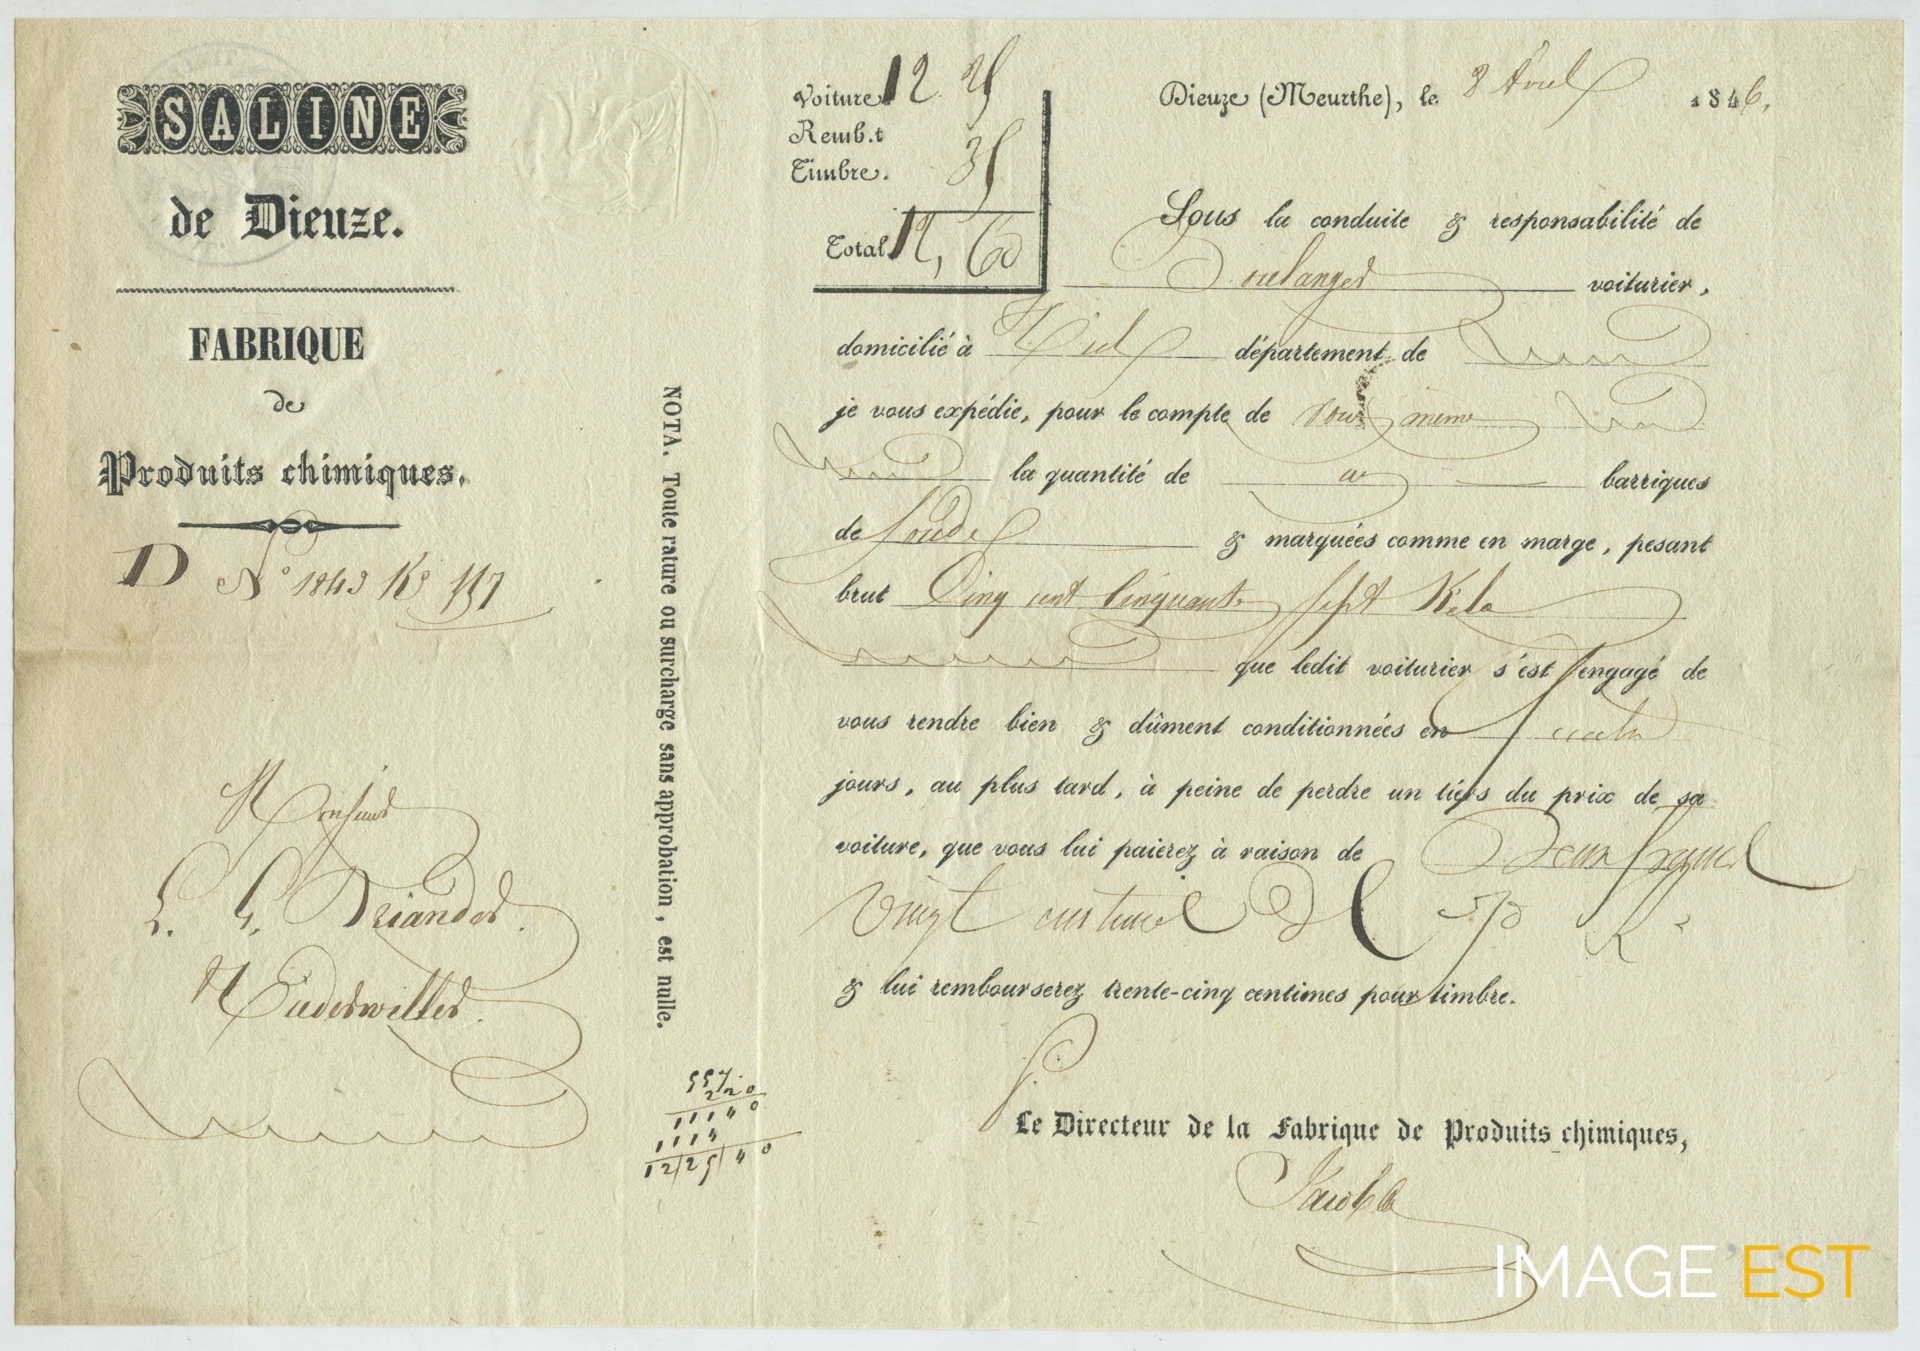 SALINE
de Dieuze.
FABRIQUE
de
Produits chimiques.
D N° 1843 K° 557
Monsieur
L. G. Briander
Niederwiller.
NOTA. Toute rature ou surcharge sans approbation, est nulle.
557
220
11140
1114
12|25|40
Voiture. 12. 25
Remb.t
Timbre. 35
Total 12, 60
Dieuze (Meurthe), le 8 Avril 1846.
Sous la conduite & responsabilité de
Boulanger voiturier,
domicilié à département de
je vous expédie, pour le compte de vous même
la quantité de barriques
de Soude & marquées comme en marge, pesant
brut Cinq cent Cinquante sept Kilo
que ledit voiturier s'est engagé de
vous rendre bien & dûment conditionnées en
jours, au plus tard, à peine de perdre un tiers du prix de sa
voiture, que vous lui paierez à raison de Deux francs
Vingt centimes
& lui rembourserez trente-cinq centimes pour timbre.
Le Directeur de la Fabrique de Produits chimiques,
IMAGE'EST